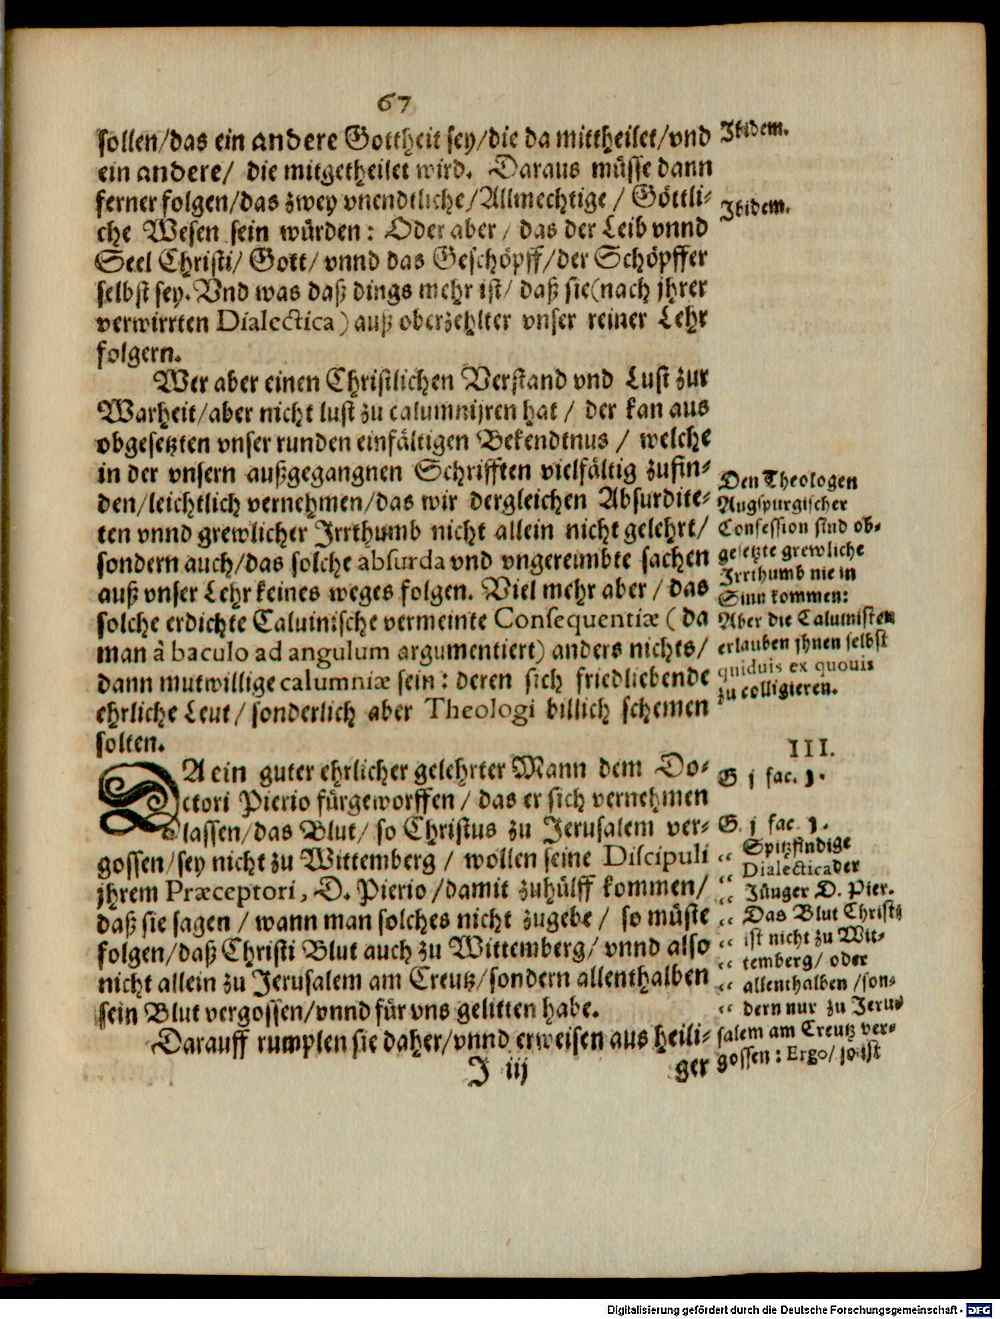 67
sollen/das ein andere Gottheit sey/die da mittheilet/vnd
ein andere/ die mitgetheilet wird. Daraus müsse dann
ferner folgen/das zwey vnendtliche/Allmechtige/ Göttli-
che Wesen sein würden: Oder aber/ das der Leib vnnd
Seel Christi/ Gott/ vnnd das Geschöpff/der Schöpffer
selbst sey. Vnd was daß dings mehr ist/ daß sie(nach jhrer
verwirrten Dialectica) auß oberzehlter vnser reiner Lehr
folgern.
Ibidem.
Ibidem.
Wer aber einen Christlichen Verstand vnd Lust zur
Warheit/aber nicht lust zu calumnijren hat/ der kan aus
obgesetzten vnser runden einfältigen Bekendtnus/ welche
in der vnsern außgegangnen Schrifften vielfältig zufin-
den/leichtlich vernehmen/das wir dergleichen Absurdite-
ten vnnd grewlicher Irrthumb nicht allein nicht gelehrt/
sondern auch/das solche absurda vnd vngereimbte sachen
auß vnser Lehr keines weges folgen. Viel mehr aber/ das
solche erdichte Caluinische vermeinte Consequentiæ (da
man à baculo ad angulum argumentiert) anders nichts/
dann mutwillige calumniæ sein: deren sich friedliebende
ehrliche Leut/ sonderlich aber Theologi billich schemen
solten.
Den Theologen
Augspurgischer
Confession sind ob-
gesetzte grewliche
Irrthumb nie in
Sinn kommen:
Aber die Caluinisten
erlauben jhnen selbst
quiduis ex quouis
zu colligieren.
DA ein guter ehrlicher gelehrter Mann dem Do-
ctori Pierio fürgeworffen/ das er sich vernehmen
lassen/das Blut/ so Christus zu Jerusalem ver-
gossen/sey nicht zu Wittemberg/ wollen seine Discipuli
jhrem Præceptori, D. Pierio/damit zuhülff kommen/
daß sie sagen/ wann man solches nicht zugebe/ so müste
folgen/daß Christi Blut auch zu Wittemberg/ vnnd also
nicht allein zu Jerusalem am Creutz/sondern allenthalben
sein Blut vergossen/vnnd für vns gelitten habe.
Darauff rumplen sie daher/vnnd erweisen aus heili-
III.
G j fac. j.
G. j fac. j.
Spitzfindige
Dialectica der
Jünger D. Pier.
Das Blut Christi
ist nicht zu Wit-
temberg/ oder
allenthalben/son-
dern nur zu Jeru-
salem am Creutz ver-
gossen: Ergo/ so ist
I iij
ger
Digitalisierung gefördert durch die Deutsche Forschungsgemeinschaft - DFG